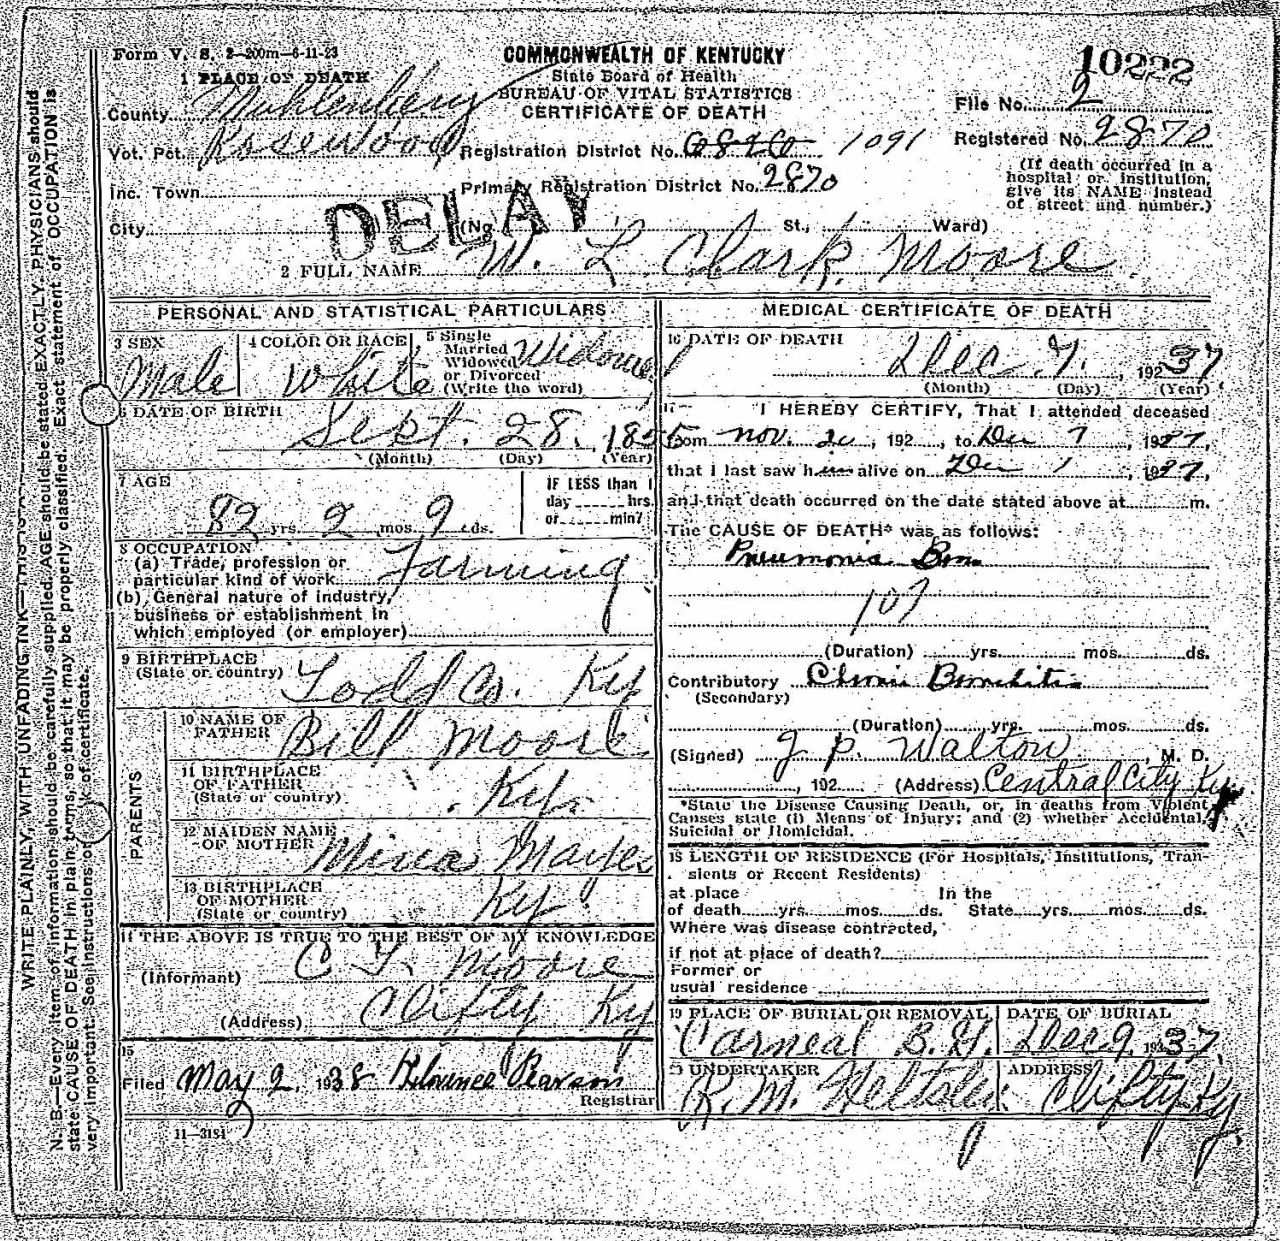 Form V. S. 2—200m—6-11-23
COMMONWEALTH OF KENTUCKY
State Board of Health
BUREAU OF VITAL STATISTICS
CERTIFICATE OF DEATH
10222
File No. 2
Registered No. 2870
(If death occurred in a
hospital or institution,
give its NAME instead
of street and number.)
1 PLACE OF DEATH
County Muhlenberg
Vot. Pct. Rosewood
Registration District No. 1091
Inc. Town
Primary Registration District No. 2870
DELAY
City (No. St., Ward)
2 FULL NAME W. L. Clark Moore
PERSONAL AND STATISTICAL PARTICULARS
3 SEX
Male
4 COLOR OR RACE
White
5 Single
Married
Widowed
or Divorced
(Write the word)
Widowed
6 DATE OF BIRTH
Sept. 28, 1855
(Month) (Day) (Year)
7 AGE
82 yrs. 2 mos. 9 ds.
IF LESS than 1
day hrs.
or min?
8 OCCUPATION
(a) Trade, profession or
particular kind of work Farming
(b) General nature of industry,
business or establishment in
which employed (or employer)
9 BIRTHPLACE
(State or country) Todd Co. Ky
PARENTS
10 NAME OF
FATHER Bill Moore
11 BIRTHPLACE
OF FATHER
(State or country) Ky.
12 MAIDEN NAME
OF MOTHER
13 BIRTHPLACE
OF MOTHER
(State or country) Ky
14 THE ABOVE IS TRUE TO THE BEST OF MY KNOWLEDGE
(Informant) C T. Moore
(Address) Clifty Ky
15
Filed May 2, 1938 Pearson
Registrar
2
11—3184
MEDICAL CERTIFICATE OF DEATH
16 DATE OF DEATH
Dec. 7, 192 37
(Month) (Day) (Year)
17 I HEREBY CERTIFY, That I attended deceased
from Nov. 20, 192, to Dec 7, 1937,
that I last saw h alive on Dec 7, 1937,
and that death occurred on the date stated above at m.
The CAUSE OF DEATH* was as follows:
Pneumonia Bron
107
(Duration) yrs. mos. ds.
Contributory Chronic Bronchitis
(Secondary)
(Duration) yrs. mos. ds.
(Signed) J P. Walton M. D.
, 192 (Address) Central City Ky
*State the Disease Causing Death, or, in deaths from Violent
Causes state (1) Means of Injury; and (2) whether Accidental,
Suicidal or Homicidal.
18 LENGTH OF RESIDENCE (For Hospitals, Institutions, Tran-
sients or Recent Residents)
at place In the
of death yrs. mos. ds. State yrs. mos. ds.
Where was disease contracted,
if not at place of death?
Former or
usual residence
19 PLACE OF BURIAL OR REMOVAL
Carneal B. G.
DATE OF BURIAL
Dec 9, 1937
UNDERTAKER
R. M.
ADDRESS
Clifty Ky.
N. B.—Every item of information should be carefully supplied. AGE should be stated EXACTLY. PHYSICIANS should
state CAUSE OF DEATH in plain terms, so that it may be properly classified. Exact statement of OCCUPATION is
very important. See instructions on back of certificate.
WRITE PLAINLY, WITH UNFADING INK—THIS IS A